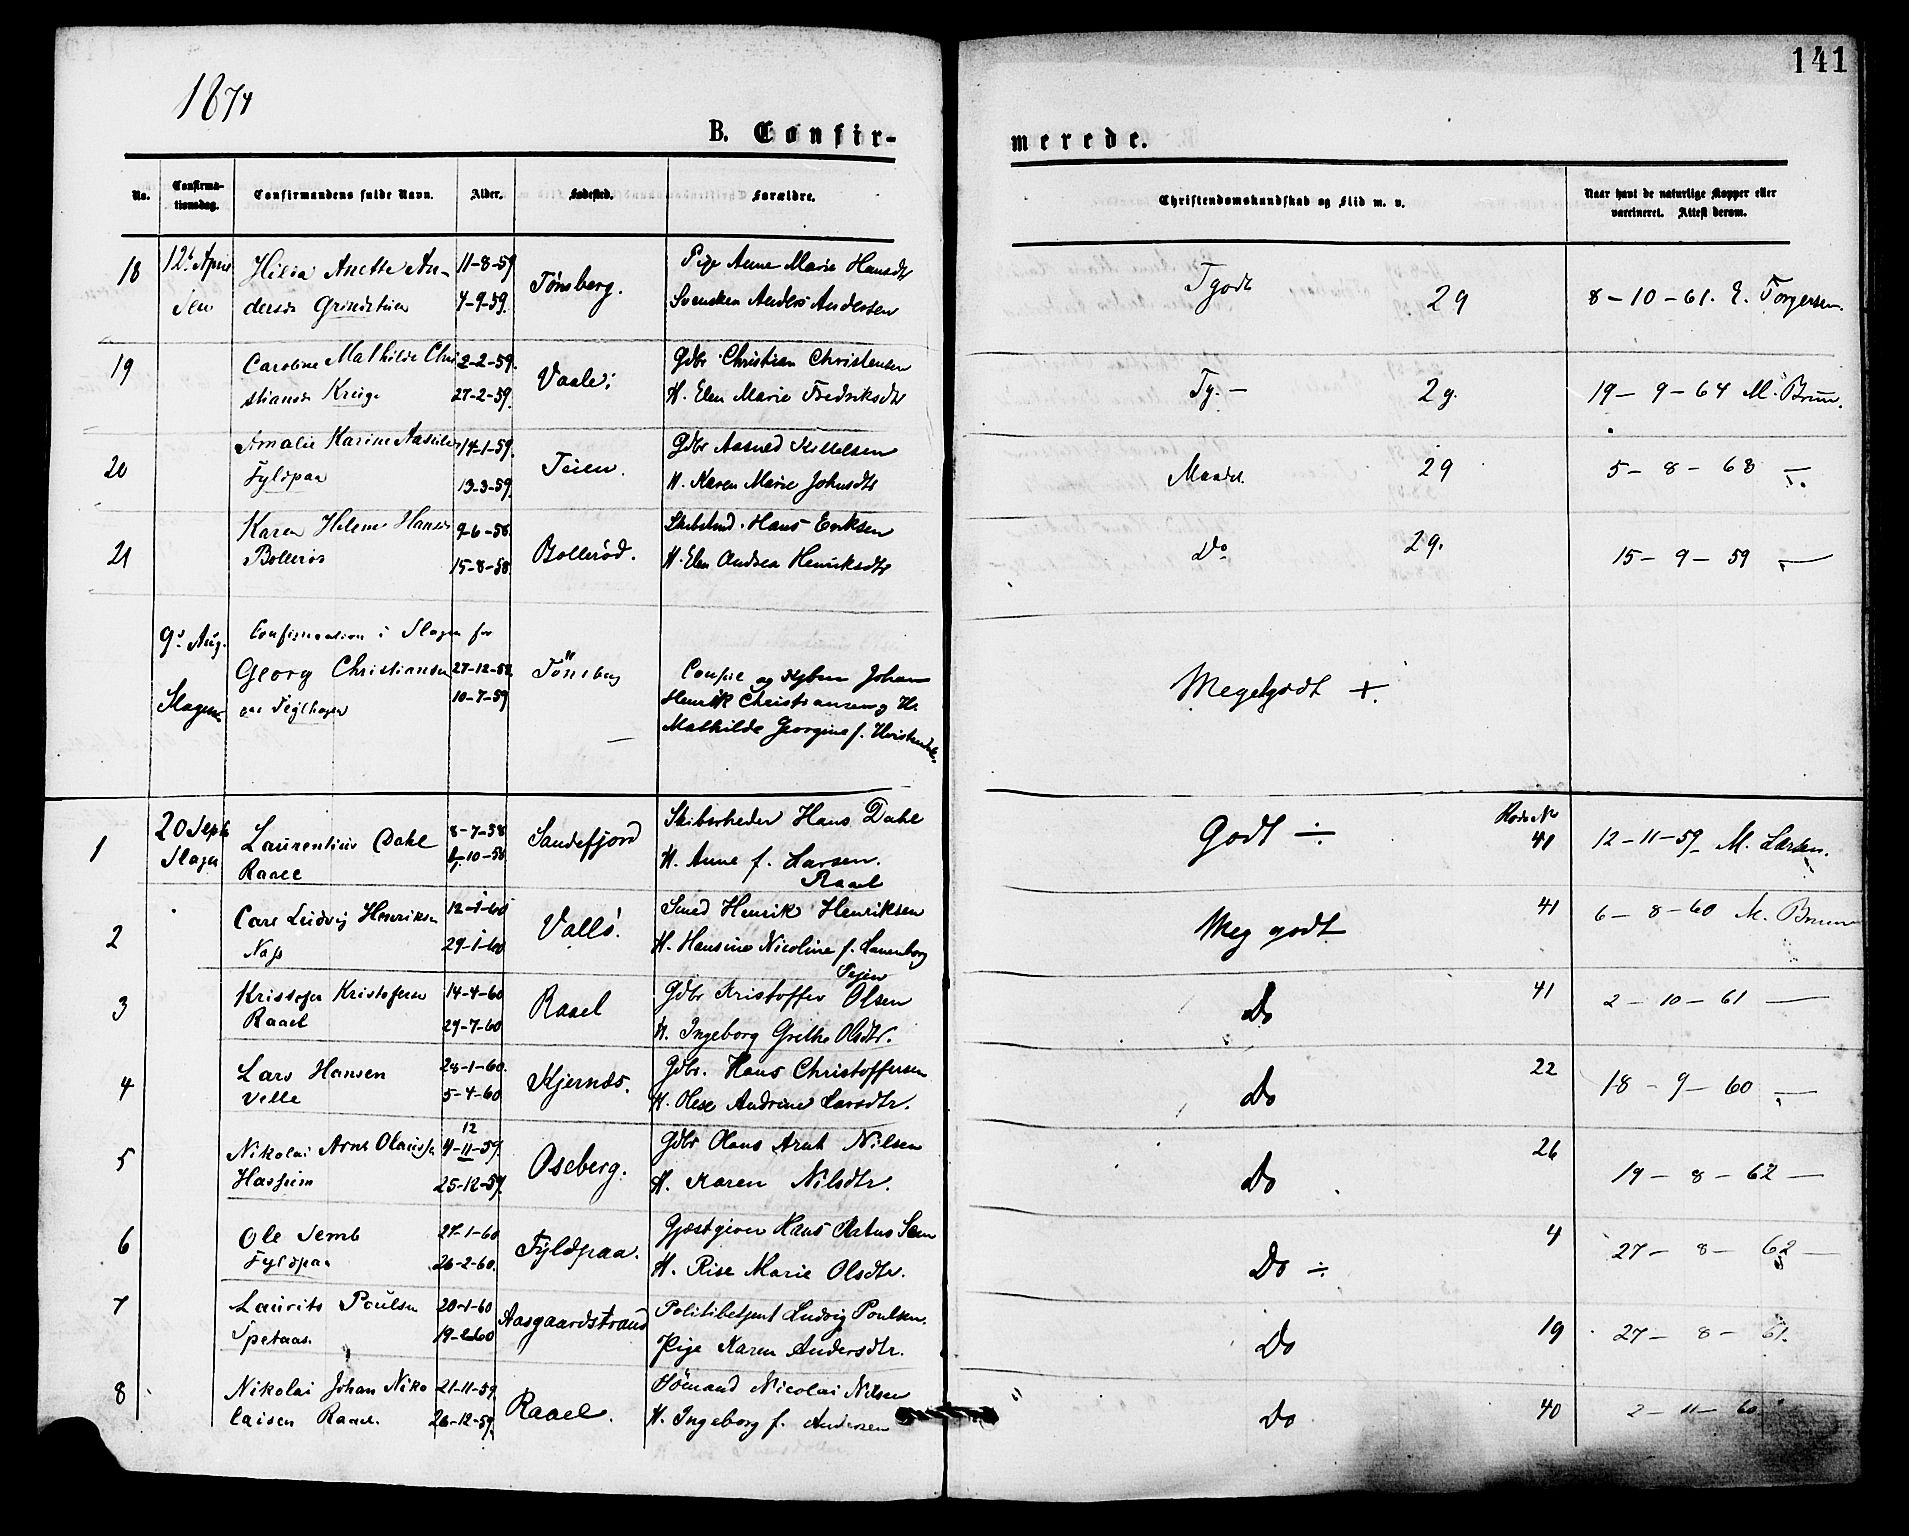 141
1874
B. Confir-
merede.
No.
Confirma-
tionsdag.
Confirmandens fulde Navn.
Alder.
Fødested.
Forældre.
Christendomskundskab og Flid m. v.
Naar havt de naturlige Kopper eller
vaccineret. Attest derom.
18 12te April Anette An- 11-8-59 Tønsberg. Pige Anne Marie Hansdtr Tgodt 29 8-10-61. E. Torgersen.
Sem dersdr 4-9-59. Svensken Anders Andersen
19 Caroline Mathilde Chri 2-2-59. Vaale; Gdbr Christian Christensen Tg. - 29. 19-9-64 M. Bruun.
stiansdr Kruge 27-2-59. H. Elen Marie Fredriksdtr
20 Amalie Karine 14-1-59. Teien. Gdbr Kittelsen Maadel. 29 5-8-68 —
Fyldpaa 13-3-59. H. Karen Marie Johnsdtr
21 Karen Helene Hansdr 9-6-58. Bollerød. Hans Eriksen Do 29. 15-9-59 —
Bollerød 15-8-58 H. Elen Andrea Henriksdtr
9de Aug. Confirmation i Slagen for
Georg Christiansen 27-12-58 Tönsberg Johan Megetgodt +
Slagen 10-7-59 Henrik Christiansen og H.
Mathilde Georgine f.
1 20 Sept. Laurentius Dahl 8-7-58 Sandefjord Skibsrheder Hans Dahl Godt ÷ Rode No 41 12-11-59 M. Larsen.
Slagen Raael -10-58 H. Anne f. Larsen.
Raael
2 Carl Ludvig Henriksen 12-1-60 Vallö. Smed Henrik Henriksen Meg godt 41 6-8-60 M. Bruun
Næss 29-1-60 H. Hansine Nicoline f.
3 Kristofersen 14-4-60 Raael Gdbr Kristoffer Olsen Do 41 2-10-61 —
Raael 29-7-60 H. Ingeborg Grethe Olsdtr.
4 Lars Hansen 28-1-60. Kjernæs. Gdbr. Hans Christoffersen Do 22 18-9-60 —
Velle 5-4-60 H. Olese Andrine Larsdtr.
5 Nikolai Arnt 4-11-59. 12 Oseberg. Gdbr Arnt Nilsen Do 26 19-8-62 —
25-12-59. H. Karen Nilsdtr.
6 Ole Semb 27-1-60 Fyldpaa. Gjæstgiver Hans Do ÷ 4 27-8-62 —
Fyldpaa 26-2-60. H. Marie Olsdtr.
7 Laurits Poulsen 20-1-60 Aasgaardstrand Politibetjent Ludvig Poulsen. Do 19 27-8-61.
Spetaas. 19-2-60 Pige Karen Andersdtr.
8 Nikolai Johan Niko 21-11-59. Raael. Sömand Nicolai Nilsen Do 40 2-11-60
laisen Raael. 26-12-59. H. Ingeborg f. Andersen